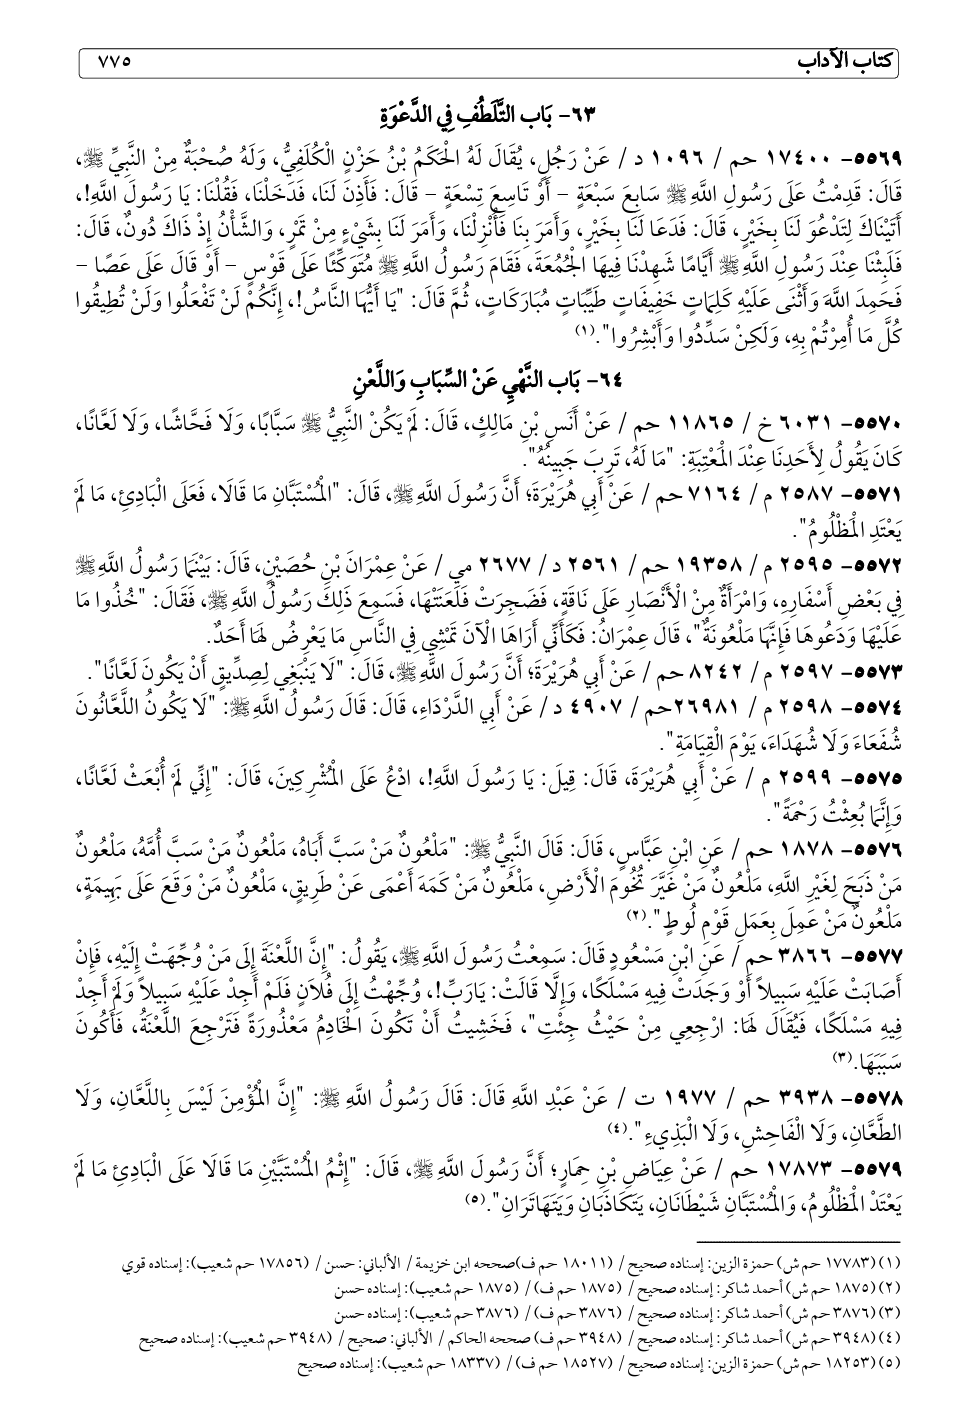 كتاب الآداب ٧٧٥
٦٣- بَاب التَّلَطُّفِ فِي الدَّعْوَةِ
٥٥٦٩- ١٧٤٠٠ حم / ١٠٩٦ د / عَنْ رَجُلٍ، يُقَالَ لَهُ الْحَكَمُ بْنُ حَزْنٍ الْكُلَفِيُّ، وَلَهُ صُحْبَةٌ مِنْ النَّبِيِّ ﷺ،
قَالَ: قَدِمْتُ عَلَى رَسُولِ اللَّهِ ﷺ سَابِعَ سَبْعَةٍ – أَوْ تَاسِعَ تِسْعَةٍ – قَالَ: فَأَذِنَ لَنَا، فَدَخَلْنَا، فَقُلْنَا: يَا رَسُولَ اللَّهِ!،
أَتَيْنَاكَ لِتَدْعُوَ لَنَا بِخَيْرٍ، قَالَ: فَدَعَا لَنَا بِخَيْرٍ، وَأَمَرَ بِنَا فَأُنْزِلْنَا، وَأَمَرَ لَنَا بِشَيْءٍ مِنْ تَمْرٍ، وَالشَّأْنُ إِذْ ذَاكَ دُونٌ، قَالَ:
فَلَبِثْنَا عِنْدَ رَسُولِ اللَّهِ ﷺ أَيَّامًا شَهِدْنَا فِيهَا الْجُمُعَةَ، فَقَامَ رَسُولُ اللَّهِ ﷺ مُتَوَكِّئًا عَلَى قَوْسٍ – أَوْ قَالَ عَلَى عَصًا –
فَحَمِدَ اللَّهَ وَأَثْنَى عَلَيْهِ كَلِمَاتٍ خَفِيفَاتٍ طَيِّبَاتٍ مُبَارَكَاتٍ، ثُمَّ قَالَ: "يَا أَيُّهَا النَّاسُ !، إِنَّكُمْ لَنْ تَفْعَلُوا وَلَنْ تُطِيقُوا
كُلَّ مَا أُمِرْتُمْ بِهِ، وَلَكِنْ سَدِّدُوا وَأَبْشِرُوا".(١)
٦٤- بَاب النَّهْيِ عَنْ السِّبَابِ وَاللَّعْنِ
٥٥٧٠- ٦٠٣١ خ / ١١٨٦٥ حم / عَنْ أَنَسِ بْنِ مَالِكٍ، قَالَ: لَمْ يَكُنْ النَّبِيُّ ﷺ سَبَّابًا، وَلَا فَحَّاشًا، وَلَا لَعَّانًا،
كَانَ يَقُولُ لِأَحَدِنَا عِنْدَ الْمَعْتِبَةِ: "مَا لَهُ، تَرِبَ جَبِينُهُ".
٥٥٧١- ٢٥٨٧ م / ٧١٦٤ حم / عَنْ أَبِي هُرَيْرَةَ؛ أَنَّ رَسُولَ اللَّهِ ﷺ، قَالَ: "الْمُسْتَبَّانِ مَا قَالَا، فَعَلَى الْبَادِئِ، مَا لَمْ
يَعْتَدِ الْمَظْلُومُ".
٥٥٧٢- ٢٥٩٥ م / ١٩٣٥٨ حم / ٢٥٦١ د / ٢٦٧٧ مي / عَنْ عِمْرَانَ بْنِ حُصَيْنٍ، قَالَ: بَيْنَمَا رَسُولُ اللَّهِ ﷺ
فِي بَعْضِ أَسْفَارِهِ، وَامْرَأَةٌ مِنْ الْأَنْصَارِ عَلَى نَاقَةٍ، فَضَجِرَتْ فَلَعَنَتْهَا، فَسَمِعَ ذَلِكَ رَسُولُ اللَّهِ ﷺ، فَقَالَ: "خُذُوا مَا
عَلَيْهَا وَدَعُوهَا فَإِنَّهَا مَلْعُونَةٌ"، قَالَ عِمْرَانُ: فَكَأَنِّي أَرَاهَا الْآنَ تَمْشِي فِي النَّاسِ مَا يَعْرِضُ لَهَا أَحَدٌ.
٥٥٧٣- ٢٥٩٧ م / ٨٢٤٢ حم / عَنْ أَبِي هُرَيْرَةَ؛ أَنَّ رَسُولَ اللَّهِ ﷺ، قَالَ: "لَا يَنْبَغِي لِصِدِّيقٍ أَنْ يَكُونَ لَعَّانًا".
٥٥٧٤- ٢٥٩٨ م / ٢٦٩٨١حم / ٤٩٠٧ د / عَنْ أَبِي الدَّرْدَاءِ، قَالَ: قَالَ رَسُولُ اللَّهِ ﷺ: "لَا يَكُونُ اللَّعَّانُونَ
شُفَعَاءَ وَلَا شُهَدَاءَ، يَوْمَ الْقِيَامَةِ".
٥٥٧٥- ٢٥٩٩ م / عَنْ أَبِي هُرَيْرَةَ، قَالَ: قِيلَ: يَا رَسُولَ اللَّهِ!، ادْعُ عَلَى الْمُشْرِكِينَ، قَالَ: "إِنِّي لَمْ أُبْعَثْ لَعَّانًا،
وَإِنَّمَا بُعِثْتُ رَحْمَةً".
٥٥٧٦- ١٨٧٨ حم / عَنِ ابْنِ عَبَّاسٍ، قَالَ: قَالَ النَّبِيُّ ﷺ: "مَلْعُونٌ مَنْ سَبَّ أَبَاهُ، مَلْعُونٌ مَنْ سَبَّ أُمَّهُ، مَلْعُونٌ
مَنْ ذَبَحَ لِغَيْرِ اللَّهِ، مَلْعُونٌ مَنْ غَيَّرَ تُخُومَ الْأَرْضِ، مَلْعُونٌ مَنْ كَمَهَ أَعْمَى عَنْ طَرِيقٍ، مَلْعُونٌ مَنْ وَقَعَ عَلَى بَهِيمَةٍ،
مَلْعُونٌ مَنْ عَمِلَ بِعَمَلِ قَوْمِ لُوطٍ".(٢)
٥٥٧٧- ٣٨٦٦ حم / عَنِ ابْنِ مَسْعُودٍ قَالَ: سَمِعْتُ رَسُولَ اللَّهِ ﷺ، يَقُولُ: "إِنَّ اللَّعْنَةَ إِلَى مَنْ وُجِّهَتْ إِلَيْهِ، فَإِنْ
أَصَابَتْ عَلَيْهِ سَبِيلاً أَوْ وَجَدَتْ فِيهِ مَسْلَكًا، وَإِلَّا قَالَتْ: يَارَبِّ!، وُجِّهْتُ إِلَى فُلَانٍ فَلَمْ أَجِدْ عَلَيْهِ سَبِيلاً وَلَمْ أَجِدْ
فِيهِ مَسْلَكًا، فَيُقَالَ لَهَا: ارْجِعِي مِنْ حَيْثُ جِئْتِ"، فَخَشِيتُ أَنْ تَكُونَ الْخَادِمُ مَعْذُورَةً فَتَرْجِعَ اللَّعْنَةُ، فَأَكُونَ
سَبَبَهَا.(٣)
٥٥٧٨- ٣٩٣٨ حم / ١٩٧٧ ت / عَنْ عَبْدِ اللَّهِ قَالَ: قَالَ رَسُولُ اللَّهِ ﷺ: "إِنَّ الْمُؤْمِنَ لَيْسَ بِاللَّعَّانِ، وَلَا
الطَّعَّانِ، وَلَا الْفَاحِشِ، وَلَا الْبَذِيءِ".(٤)
٥٥٧٩- ١٧٨٧٣ حم / عَنْ عِيَاضِ بْنِ حِمَارٍ؛ أَنَّ رَسُولَ اللَّهِ ﷺ، قَالَ: "إِثْمُ الْمُسْتَبَّيْنِ مَا قَالَا عَلَى الْبَادِئِ مَا لَمْ
يَعْتَدْ الْمَظْلُومُ، وَالْمُسْتَبَّانِ شَيْطَانَانِ، يَتَكَاذَبَانِ وَيَتَهَاتَرَانِ".(٥)
(١) (١٧٧٨٣ حم ش) حمزة الزين: إسناده صحيح / (١٨٠١١ حم ف)صححه ابن خزيمة / الألباني: حسن / (١٧٨٥٦ حم شعيب): إسناده قوي
(٢) (١٨٧٥ حم ش) أحمد شاكر: إسناده صحيح / (١٨٧٥ حم ف)/ (١٨٧٥ حم شعيب): إسناده حسن
(٣) (٣٨٧٦ حم ش) أحمد شاكر: إسناده صحيح / (٣٨٧٦ حم ف)/ (٣٨٧٦ حم شعيب): إسناده حسن
(٤) (٣٩٤٨ حم ش) أحمد شاكر: إسناده صحيح / (٣٩٤٨ حم ف) صححه الحاكم / الألباني: صحيح / (٣٩٤٨ حم شعيب): إسناده صحيح
(٥) (١٨٢٥٣ حم ش) حمزة الزين: إسناده صحيح / (١٨٥٢٧ حم ف)/ (١٨٣٣٧ حم شعيب): إسناده صحيح